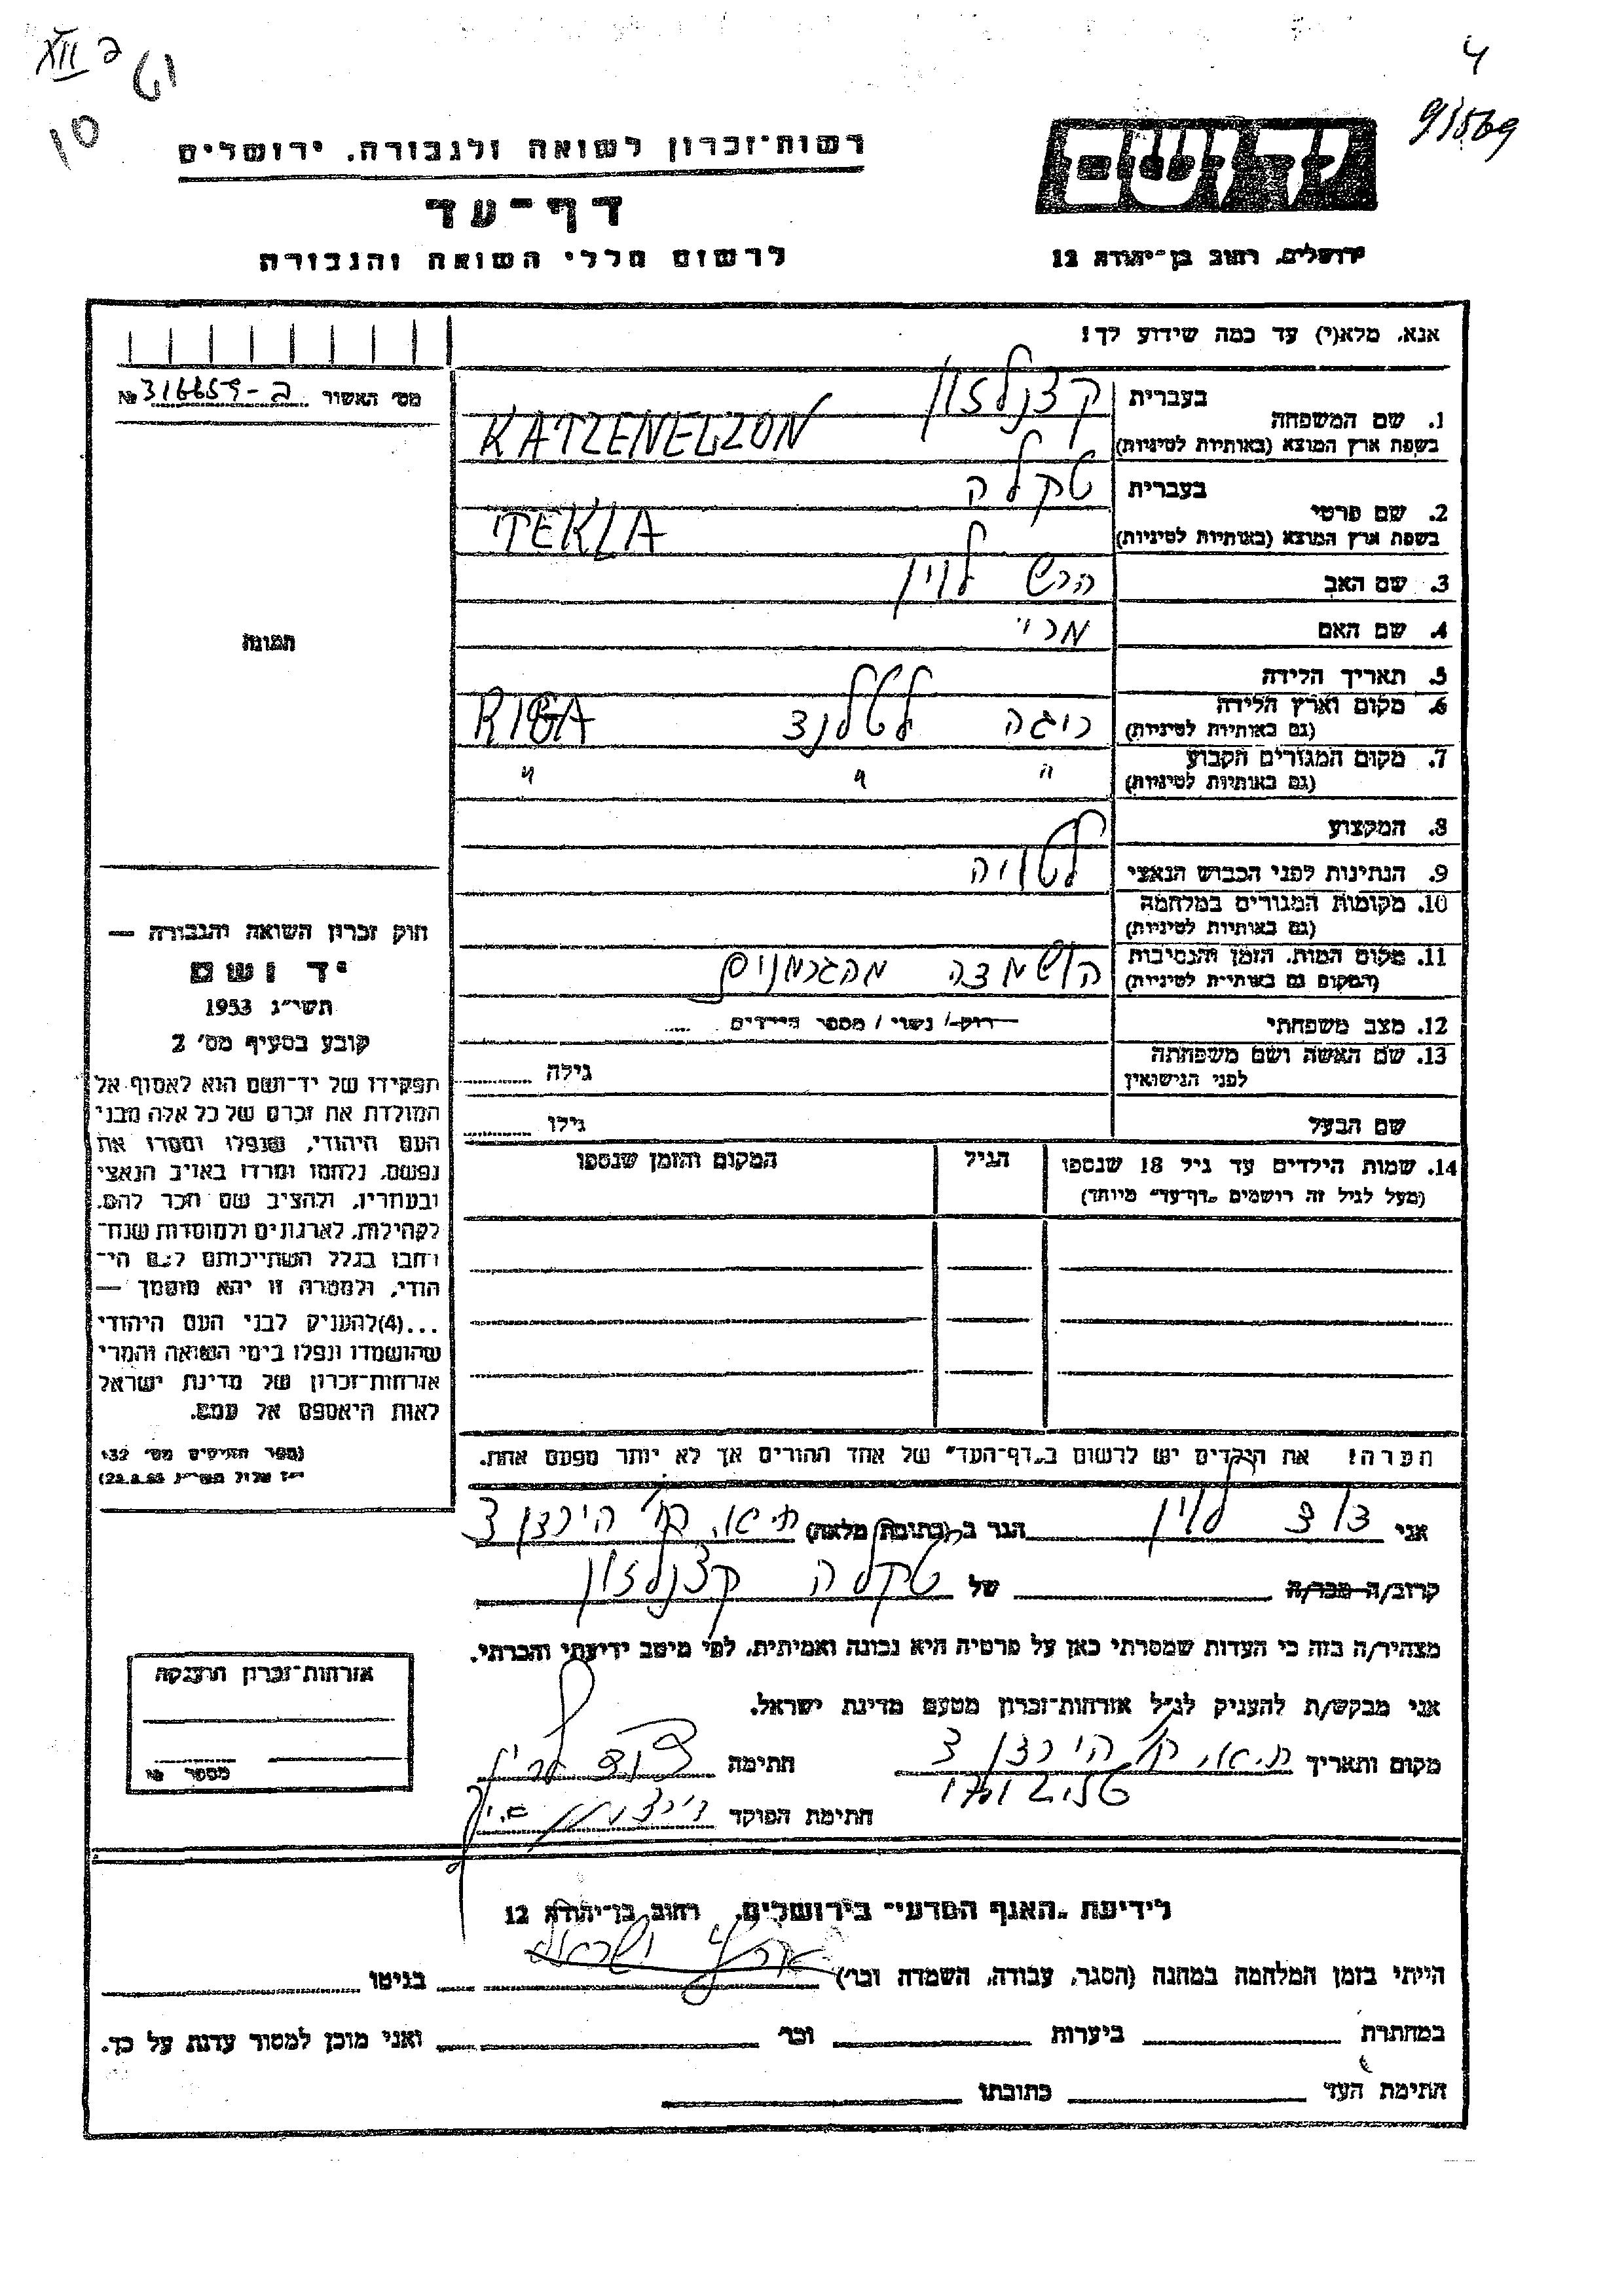 XII ב
61
10
4
9/1569
רשות־זכרון לשואה ולגבורה, ירושלים
דף־עד
לרשום חללי השואה והגבורה
ירושלים, רחוב בן־יהודה 12
אנא, מלא(י) עד כמה שידוע לך!
מס׳ האשור № 316659-ב
1. שם המשפחה
בעברית קצנלזון
בשפת ארץ המוצא (באותיות לטיניות) KATZENELZON
2. שם פרטי
בעברית טקלה
בשפת ארץ המוצא (באותיות לטיניות) TEKLA
3. שם האב הרש לוין
4. שם האם מרי
5. תאריך הלידה
6. מקום וארץ הלידה
(גם באותיות לטיניות) ריגה לטלנד RIGA
7. מקום המגורים הקבוע
(גם באותיות לטיניות) " " "
8. המקצוע
9. הנתינות לפני הכבוש הנאצי לטויה
10. מקומות המגורים במלחמה
(גם באותיות לטיניות)
11. מקום המות, הזמן והנסיבות
(המקום גם באותיות לטיניות) הושמדה מהגרמנים
12. מצב משפחתי רוק / נשוי / מספר הילדים
13. שם האשה ושם משפחתה
לפני הנישואין גילה
שם הבעל גילו
14. שמות הילדים עד גיל 18 שנספו הגיל המקום והזמן שנספו
(מעל לגיל זה רושמים „דף־עד" מיוחד)
הערה! את הילדים יש לרשום ב„דף־העד" של אחד ההורים אך לא יותר מפעם אחת.
תמונה
חוק זכרון השואה והגבורה —
יד ושם
תשי״ג 1953
קובע בסעיף מס׳ 2
תפקידו של יד־ושם הוא לאסוף אל
המולדת את זכרם של כל אלה מבני
העם היהודי, שנפלו ומסרו את
נפשם, נלחמו ומרדו באויב הנאצי
ובעוזריו, ולהציב שם וזכר להם,
לקהילות, לארגונים ולמוסדות שנח־
רבו בגלל השתייכותם לעם הי־
הודי, ולמטרה זו יהא מוסמך —
...(4) להעניק לבני העם היהודי
שהושמדו ונפלו בימי השואה והמרי
אזרחות־זכרון של מדינת ישראל
לאות היאספם אל עמם.
(ספר החוקים מס׳ 132
י״ז אלול תשי״ג 28.8.53)
אני דוד לוין הגר ב (כתובת מלאה) ת.א. קר׳ הירדן 3
קרוב/ה מכר/ה של טקלה קצנלזון
מצהיר/ה בזה כי העדות שמסרתי כאן על פרטיה היא נכונה ואמיתית, לפי מיטב ידיעתי והכרתי.
אני מבקש/ת להעניק לנ״ל אזרחות־זכרון מטעם מדינת ישראל.
מקום ותאריך ת.א. קר׳ הירדן 3 חתימה דוד לוין
חתימת הפוקד
אזרחות־זכרון הוענקה
מספר
לידיעת „האגף המדעי" בירושלים, רחוב בן־יהודה 12
הייתי בזמן המלחמה במחנה (הסגר, עבודה, השמדה וכו׳) בגיטו
במחתרת ביערות וכו׳ ואני מוכן למסור עדות על כך.
חתימת העד כתובתו